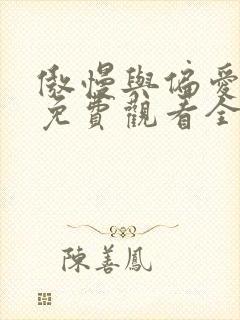 傲慢與偏愛
免費觀看全
陳善鳳